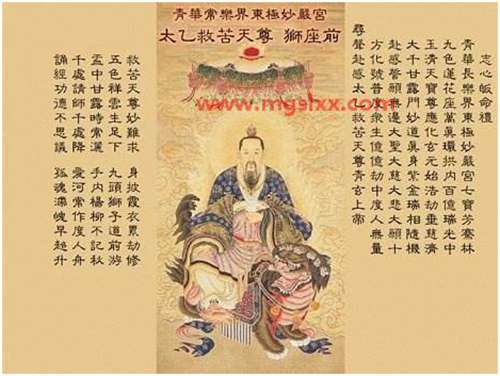 青華常樂界東極妙嚴宮
太乙救苦天尊 獅座前
志心皈命禮
青華長樂界東極妙嚴宮七寶芳騫林
九色蓮花座萬真環拱內百億瑞光中
玉清天寶尊應化玄元始浩劫垂慈濟
大千甘露門妙道真身紫金瑞相隨機
赴感誓願無邊大聖大慈大悲大願十
方化號普度眾生億億劫中度人無量
尋聲赴感太乙救苦天尊青玄上帝
救苦天尊妙難求 身披霞衣累劫修
五色祥雲生足下 九頭獅子道前游
盂中甘露時常灑 手內楊柳不記秋
千處請師千處降 愛河常作度人舟
誦經功德不思議 孤魂滯魄早超升
www.mgslxx.com